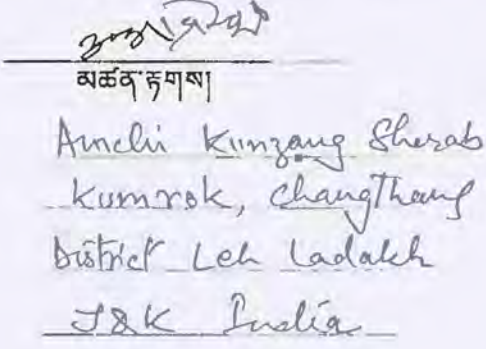 མཚན་རྟགས།
Amchi Kunzang Sherab
Kumrok, ChangThang
District Leh Ladakh
J&K India